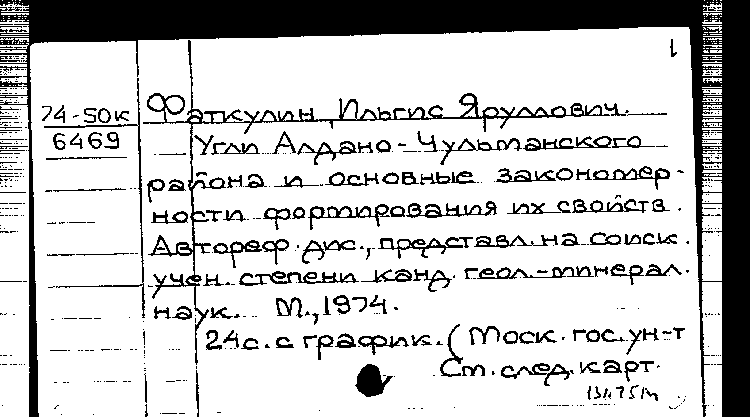 1
74-50к
6469
Фаткулин, Ильгис Яруллович.
Угли Алдано-Чульманского
района и основные закономер-
ности формирования их свойств.
Автореф. дис., представл. на соиск.
учен. степени канд. геол.-минерал.
наук. М., 1974.
24с. с график. (Моск. гос. ун-т
См. след. карт.